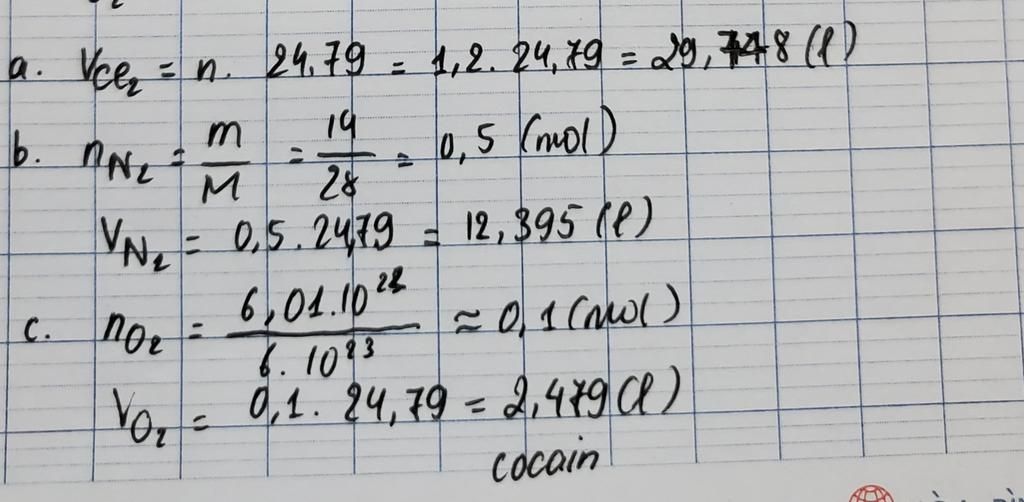 a. V_Cl₂ = n. 24,79 = 1,2. 24,79 = 29,748 (l)
b. n_N₂ = m/M = 14/28 = 0,5 (mol)
V_N₂ = 0,5. 24,79 = 12,395 (l)
c. n_O₂ = 6,01.10²²/6.10²³ ≈ 0,1 (mol)
V_O₂ = 0,1. 24,79 = 2,479 (l)
cocain